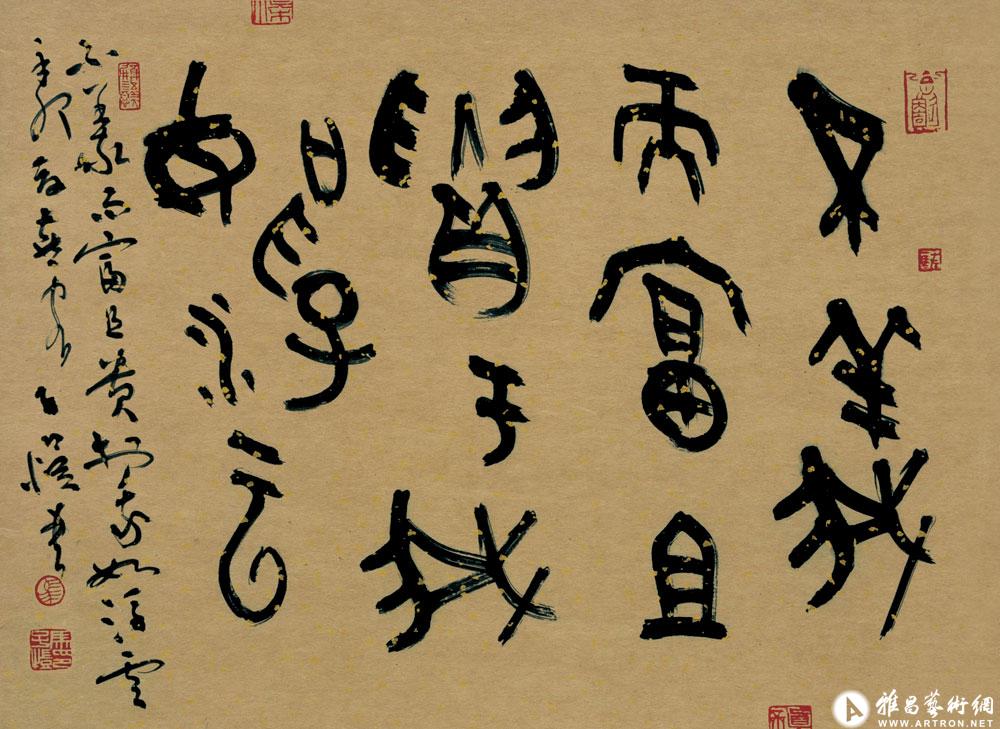 不義
而富且
貴于我
如浮云
不義而富且貴於我如浮雲
辛卯
雅昌藝術網
WWW.ARTRON.NET